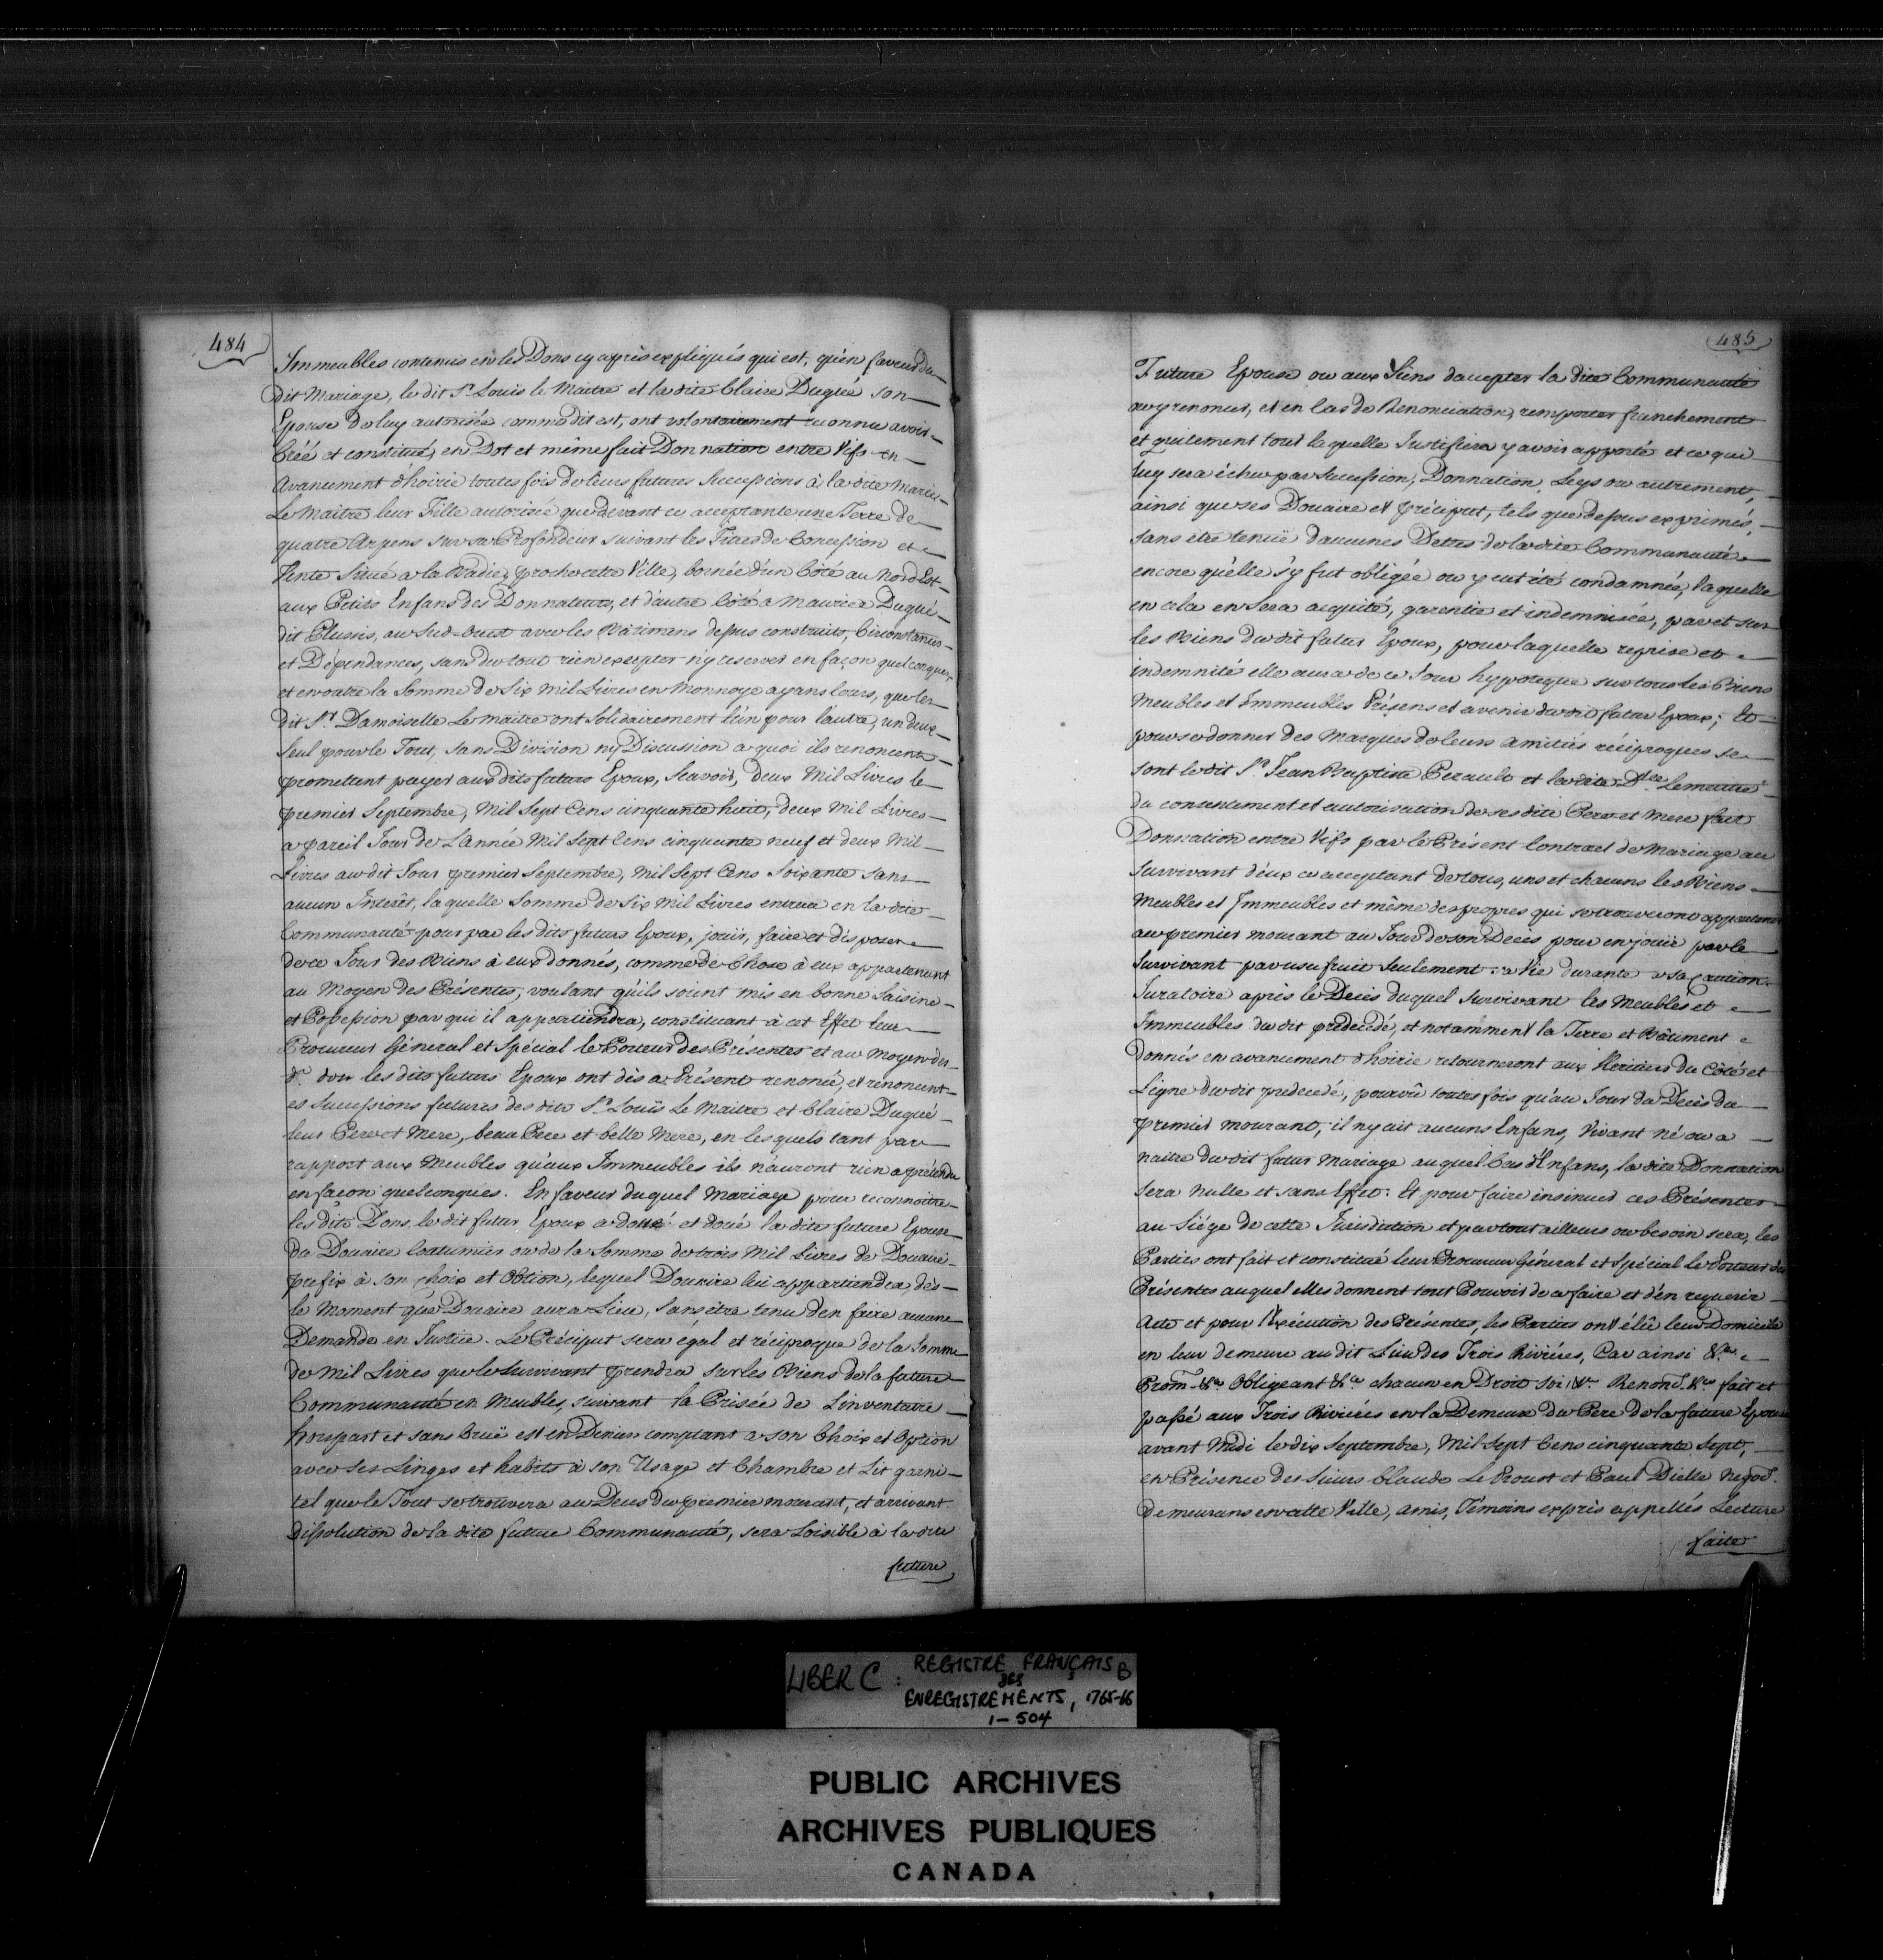 484
Immeubles contenus en les Dons cy après expliqués qui est, qu'en faveur du
dit Mariage, le dit Sr. Louis le Maitre et la dite Claire Dugué son
Epouse de luy autorisée comme dit est, ont volontairement reconnu avoir
Créé et constitué, en Dot et même fait Donnation entre Vifs en
Avancement d'hoirie toutes fois de leurs futures Successions à la dite Marie
Le Maitre leur Fille autorisée que devant ce acceptante une Terre de
quatre Arpens sur sa Profondeur suivant les Titres de Concession et
Vente Situé a la Badie, proche cette Ville, bornée d'un Côté au Nord Est
aux Petits Enfans des Donnateurs, et d'autre Côté a Maurice Dugué
dit Plusis, au Sud-Ouest avec les Bâtimens dessus construits, Circonstances
et Dépendances, sans du tout rien excepter n'y reserver en façon quelconques,
et en outre la Somme de Six Mil Livres en Monnoye ayans Cours, que les
dit Sr. Damoiselle Le maitre ont Solidairement l'un pour l'autre, un deux
Seul pour le Tout, sans Division ny Discussion a quoi ils renoncent
promettent payer aux dits futurs Epoux, Scavoir, deux Mil Livres le
premier Septembre, Mil Sept Cens cinquante huit, deux Mil Livres
a pareil Jour de L'année Mil Sept Cens cinquante neuf et deux Mil
Livres au dit Jour premier Septembre, Mil Sept Cens Soixante sans
aucun Interêt, la quelle Somme de Six Mil Livres entrera en la dite
Communauté pour par les dits futurs Epoux, jouir, faire et disposer
de ce Jour des Biens à eux donnés, comme de Chose à eux appartenant
au Moyen des Présentes, voulant qu'ils soient mis en bonne Saisine
et Possession par qui il appartiendra, constituant à cet Effet leur
Procureur Général et Spécial le Porteur des Présentes et au Moyen des
dt. don les dits futurs Epoux ont dès a Présent renoncé, et renoncent
es Successions futures des dits Sr. Louis Le Maitre et Claire Dugué
leur Pere et Mere, beau Pere et belle Mere, en lesquels tant par
rapport aux Meubles qu'aux Immeubles ils n'auront rien a prétendre
en façon quelconques. En faveur duquel Mariage pour reconnoitre
les dits Dons, le dit futur Epoux a doué et doüé la dite future Epouse
du Douaire Coutumier ou de la Somme de trois Mil Livres de Douaire
prefix à son Choix et Obtion, lequel Douaire lui appartiendra, dès
le Moment que Douaire aura Lieu, sans être tenu d'en faire aucune
Demande en Justice. Le Préciput sera égal et réciproque de la Somme
de Mil Livres que le Survivant prendra sur les Biens de la future
Communauté en Meubles, suivant la Prisée de L'inventaire
horspart et sans Cruë est en Denier comptant a son Choix et Option
avec ses Linges et habits à son Usage et Chambre et Lit garni
tel que le Tout se trouvera au Deces du premier mourant, et arrivant
Dissolution de la dite future Communauté, sera Loisible à la dite
future
485
Future Epouse ou aux Siens d'accepter la dite Communauté
ou y renoncer, et en Cas de Renonciation, remporter franchement
et quitement tout la quelle Justifiera y avoir apporté et ce que
luy sera échu par Succession, Donnation, Legs ou autrement,
ainsi que ses Douaire et préciput, tels que dessus exprimés,
sans être tenuë d'aucunes Dettes de la dite Communauté
encore qu'elle s'y fut obligée ou y eut été condamnée, laquelle
en cela en Sera acquité, garentie et indemnisée, par et sur
les Biens du dit futur Epoux, pour laquelle reprise et
indemnité elle aura de ce Jour hypoteque sur tous les Biens
Meubles et Immeubles Présens et avenir du dit futur Epoux; Et
pour se donner des Marques de leurs amitiés réciproques se
sont le dit Sr. Jean Baptiste Perault et la dite Dlle. Lemaitre
du consentement et autorisation de ses dits Pere et Mere fait
Donnation entre Vifs par le Présent Contract de Mariage au
Survivant d'eux ce acceptant de tous, uns et chacuns les Biens
Meubles et Immeubles et même des propres qui se trouveront appartenir
au premier mourant au Jour de son Decès pour en jouir par le
Survivant par usufruit Seulement, a Vie durante a sa Caution
Juratoire après le Decès duquel Survivant les Meubles et
Immeubles du dit predecedé, et notamment la Terre et Bâtiment
donnés en avancement d'hoirie retourneront aux Heritiers du Côté et
Ligne du dit predecedé, pourvû toutes fois qu'au Jour du Decès du
premier mourant, il n'y ait aucuns Enfans, Vivant né ou a
naitre du dit futur Mariage auquel Cas d'Enfans, la dite Donnation
Sera Nulle et sans Effet. Et pour faire insinuer ces Présentes
au Siége de cette Jurisdiction et par tout ailleurs ou besoin sera, les
Parties ont fait et constitué leur Procureur Général et Spécial le Porteur des
Présentes auquel elles donnent tout Pouvoir de ce faire et d'en requerir
Acte et pour l'Exécution des Présentes, les Parties ont élû leur Domicile
en leur demeure au dit Lieu des Trois Riviéres, Car ainsi &ca.
Prom. &ca Obligeant &ca chacun en Droit soi &ca Renonc. &ca fait et
passé aux Trois Riviéres en la Demeure du Pere de la future Epouse
avant Midi le dix Septembre, Mil Sept Cens cinquante Sept,
en Présence des Sieurs Claude Le Proust et Paul Dielle Negot.
demeurans en cette Ville, amis, Témoins exprès appellés Lecture
faite
LIBER C : REGISTRE FRANÇAIS B
DES
ENREGISTREMENTS, 1765-66
1-504
PUBLIC ARCHIVES
ARCHIVES PUBLIQUES
CANADA